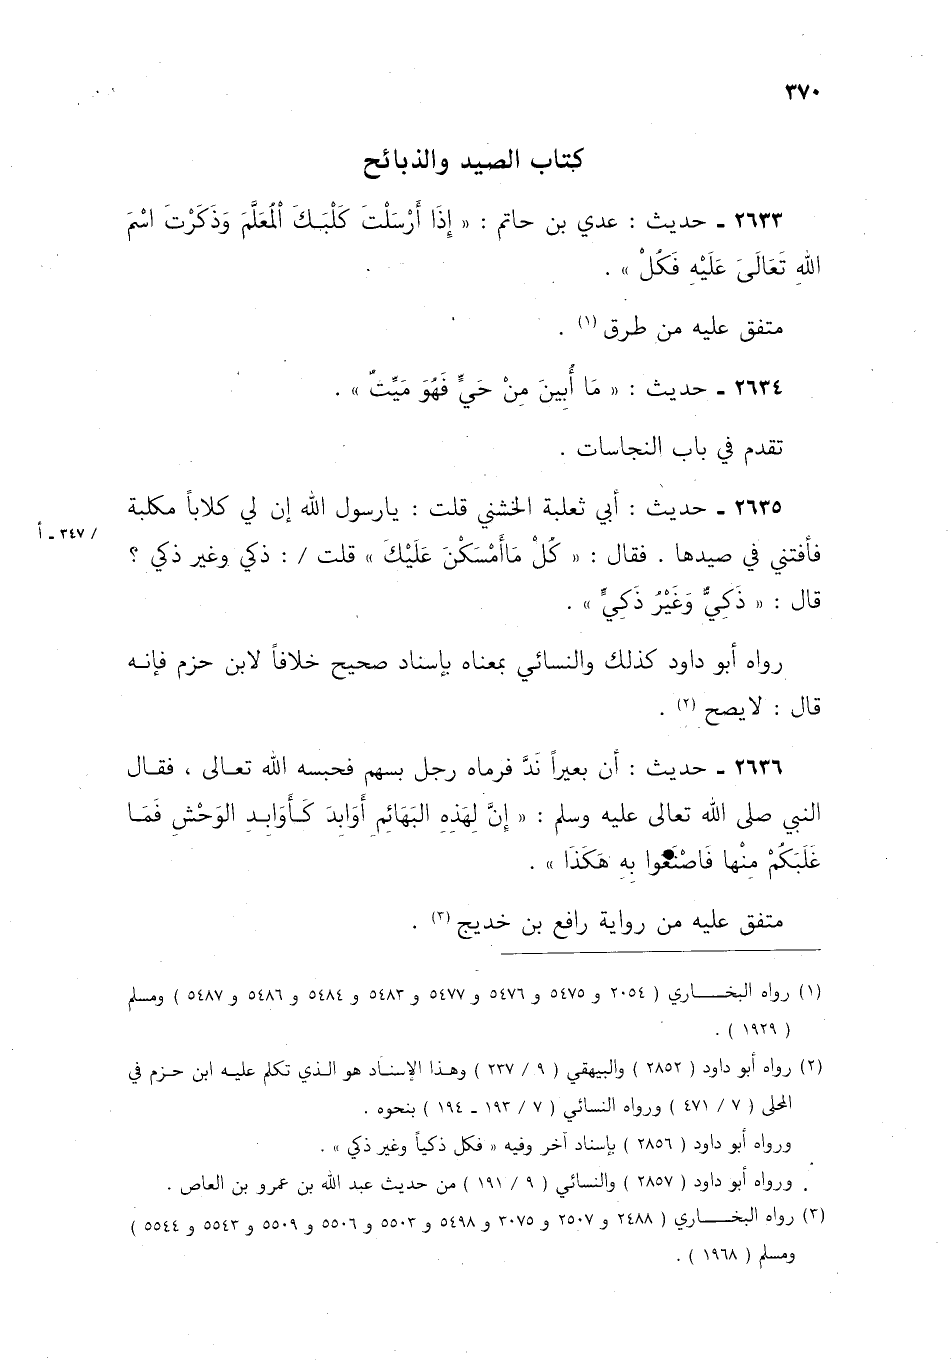 ٣٧٠
كتاب الصيد والذبائح
٢٦٣٣ ـ حديث : عدي بن حاتم : « إِذَا أَرْسَلْتَ كَلْبَكَ الْمُعَلَّمَ وَذَكَرْتَ اسْمَ
اللهِ تَعَالَىَ عَلَيْهِ فَكُلْ » .
متفق عليه من طرق (١) .
٢٦٣٤ ـ حديث : « مَا أُبِينَ مِنْ حَيٍّ فَهُوَ مَيِّتٌ » .
تقدم في باب النجاسات .
٢٦٣٥ ـ حديث : أبي ثعلبة الخشني قلت : يارسول الله إن لي كلاباً مكلبة
/ ٣٤٧ ـ أ
فأفتني في صيدها . فقال : « كُلْ مَاأَمْسَكْنَ عَلَيْكَ » قلت / : ذكي وغير ذكي ؟
قال : « ذَكِيٌّ وَغَيْرُ ذَكِيٍّ » .
رواه أبو داود كذلك والنسائي بمعناه بإسناد صحيح خلافاً لابن حزم فإنه
قال : لايصح (٢) .
٢٦٣٦ ـ حديث : أن بعيراً نَدَّ فرماه رجل بسهم فحبسه الله تعالى ، فقال
النبي صلى الله تعالى عليه وسلم : « إِنَّ لِهَذِهِ البَهَائِمِ أَوَابِدَ كَأَوَابِدِ الوَحْشِ فَمَا
غَلَبَكُمْ مِنْها فَاصْنَعُوا بِهِ هَكَذَا » .
متفق عليه من رواية رافع بن خديج (٣) .
(١) رواه البخاري ( ٢٠٥٤ و ٥٤٧٥ و ٥٤٧٦ و ٥٤٧٧ و ٥٤٨٣ و ٥٤٨٤ و ٥٤٨٦ و ٥٤٨٧ ) ومسلم
( ١٩٢٩ ) .
(٢) رواه أبو داود ( ٢٨٥٢ ) والبيهقي ( ٩ / ٢٣٧ ) وهذا الإسناد هو الذي تكلم عليه ابن حزم في
المحلى ( ٧ / ٤٧١ ) ورواه النسائي ( ٧ / ١٩٣ ـ ١٩٤ ) بنحوه .
ورواه أبو داود ( ٢٨٥٦ ) بإسناد آخر وفيه « فكل ذكياً وغير ذكي » .
ورواه أبو داود ( ٢٨٥٧ ) والنسائي ( ٩ / ١٩١ ) من حديث عبد الله بن عمرو بن العاص .
(٣) رواه البخاري ( ٢٤٨٨ و ٢٥٠٧ و ٣٠٧٥ و ٥٤٩٨ و ٥٥٠٣ و ٥٥٠٦ و ٥٥٠٩ و ٥٥٤٣ و ٥٥٤٤ )
ومسلم ( ١٩٦٨ ) .